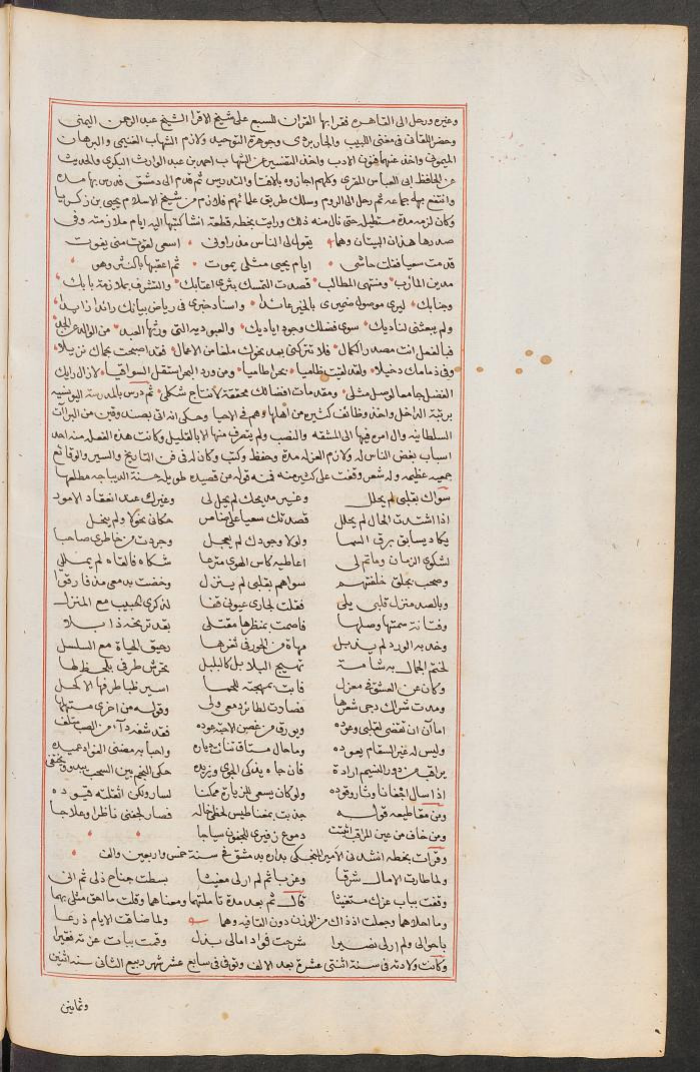 وغيره ورحل الى القاهرة فقرا بها القران للسبع على شيخ الاقرا الشيخ عبد الرحمن اليمنى
وحضر اللقانى فى مغنى اللبيب والجاربردى وجوهرة التوحيد ولازم الشهاب الغنيمى والبرهان
الميمونى واخذ عنهما فنون الادب واخذ التفسير عن الشهاب احمد بن عبد الوارث البكرى والحديث
عن الحافظ ابى العباس المقرى وكلهم اجازوه بالافتا والتدريس ثم قدم الى دمشق فدرس بها مده
وانتفع به جماعه ثم رحل الى الروم وسلك طريق علمائهم فلازم من شيخ الاسلام يحيى بن زكريا
وكان لزمه مدة مستطيله حتى نال منه ذلك ورايت بخطه قطعة انشا كتبها اليه ايام ملازمته وفى
صدرها هذان البيتان وهما يقول لى الناس مذ راونى اسعى لقوت منى يفوت
قدمت سعيا فقلت حاشى ايام يحيى مثلى يموت ثم اعقبها بالنثر وهو
مدين المآرب ومنتهى المطالب قصدت التمسك بثرى اعتابك والتشرف بملازمة بابك
وجنابك ليرى موصول ضميرى بالخير عائدا واسناد خبرى فى رياض بيانك رائدا زايدا
ولم يبعثنى لناديك سوى فضلك وجود اياديك والعبوديه التى ورثها العبد من الوالد عن الجد
فبالفعل انت مصدر الكمال فلا تتركنى بعد نحوك ملغا من الاعمال فقد اصبحت بحماك نزيلا
وفى ذمامك دخيلا ولقد لقيت بحرا طاميا ومن ورد البحر استقل السواقيا لا زال رايك
الفضل جامعا لوسل مثلى ومقدمات افضالك محققة لانتاج شكلى ثم درس بالمدرسة اليونسيه
برتبة الداخل واخذ وظائف كثيره من اهلها وهم فى الاحيا وحكى انه اتى بصندوقين من البرآت
السلطانيه وال امره فيها الى المشقه والنصب ولم يتصرف منها الا بالقليل وكانت هذه الفعله منه احد
اسباب بغض الناس له ولازم العزله مدة وحفظ وكتب وكان له فى فن التاريخ والسير والوقائع
جمعيه عظيمه وله شعر وقفت على كثير منه فمنه قوله من قصيده طويله حسنة الديباجه مطلعها
سواك بقلبى لم يحلل وغير مديحك لم يحل لى وغيرك عند انعقاد الامور
اذا اشتدت الحال لم يحلل قصدتك سعيا على ضامر حكانى نحولا ولم ينحل
يكاد يسابق برق السما ولولا وجودك لم يعجل وجردت من خاطرى صاحبا
لشكوى الزمان وما تم لى اعاطيه كاس الهوى مترعا شكاه فالفاه لم يمللى
وصحب بجلق خلفتهم سواهم بقلبى لم ينزل وخضت بدمعى مذ فارقوا
وبالصد منزل قلبى بلى فقلت لجارى عيونى قفا لذكرى الحبيب مع المنزل
وفتانة سمتها وصلها فاصمت بمنظرها مقتلى بقد ترنحه ذابلا
وخد به الورد لم يذبل مهاة من الحور فى ثغرها رحيق الحياة مع السلسل
لختم الجمال به شامة تهيج البلابل كالبلبل تحرش طرفى بالحظها
وكان عن العشق فى معزل فابت بمهجته للحمى اسير ظبا طرفها الاكحل
ومدت شراك دجى شعرها فصادت لطائر دمى ولى وقوله من اخرى مستهلها
اما آن ان تقضى لقلبى وعوده ويورق من غصن الاحبة عوده فقد شفه داء من الصب متلف
وليس له غير السقام يعوده وما حال مشتاق تناءت دياره واحبابه مضنى الفؤاد عميده
يراقب من دور النسيم ارادة فان جاءه يذكى الجوى ويزيده حكى النجم بين السحب يبدو ويختفى
اذا سال اجفانا وثار وقوده ولو كان يسعى للزيارة ممكنا لسار ولكن اثقلته قيوده
ومن مقاطيعه قوله جذبت بمغناطيس لحظى خاله فصار لجفنى ناظرا وعلاجا
ومن خاف من عين المراقب انبتت دموع زفيرى للجفون سياجا
وقرأت بخطه انشدنى الامير المنجكى بداره بدمشق فى سنة خمس واربعين والف
ولما طارت الامال شرقا وغربا ثم لم ار لى مغيثا بسطت جناح ذلى ثم انى
وقفت بباب عزك مستغيثا قال ثم بعد مدة تاملتها ومعناها وقلت ما الحق مثلى بهما
وما احلاهما وجعلت اذ ذاك من الوزن دون القافيه وهما ولما ضاقت الايام ذرعا
باحوالى ولم ار لى نصيرا شرحت فواد امالى بذل وقمت بباب عزته فقيرا
وكانت ولادته فى سنة اثنتى عشرة بعد الالف وتوفى فى سابع عشر شهر ربيع الثانى سنة اثنين
وثمانين